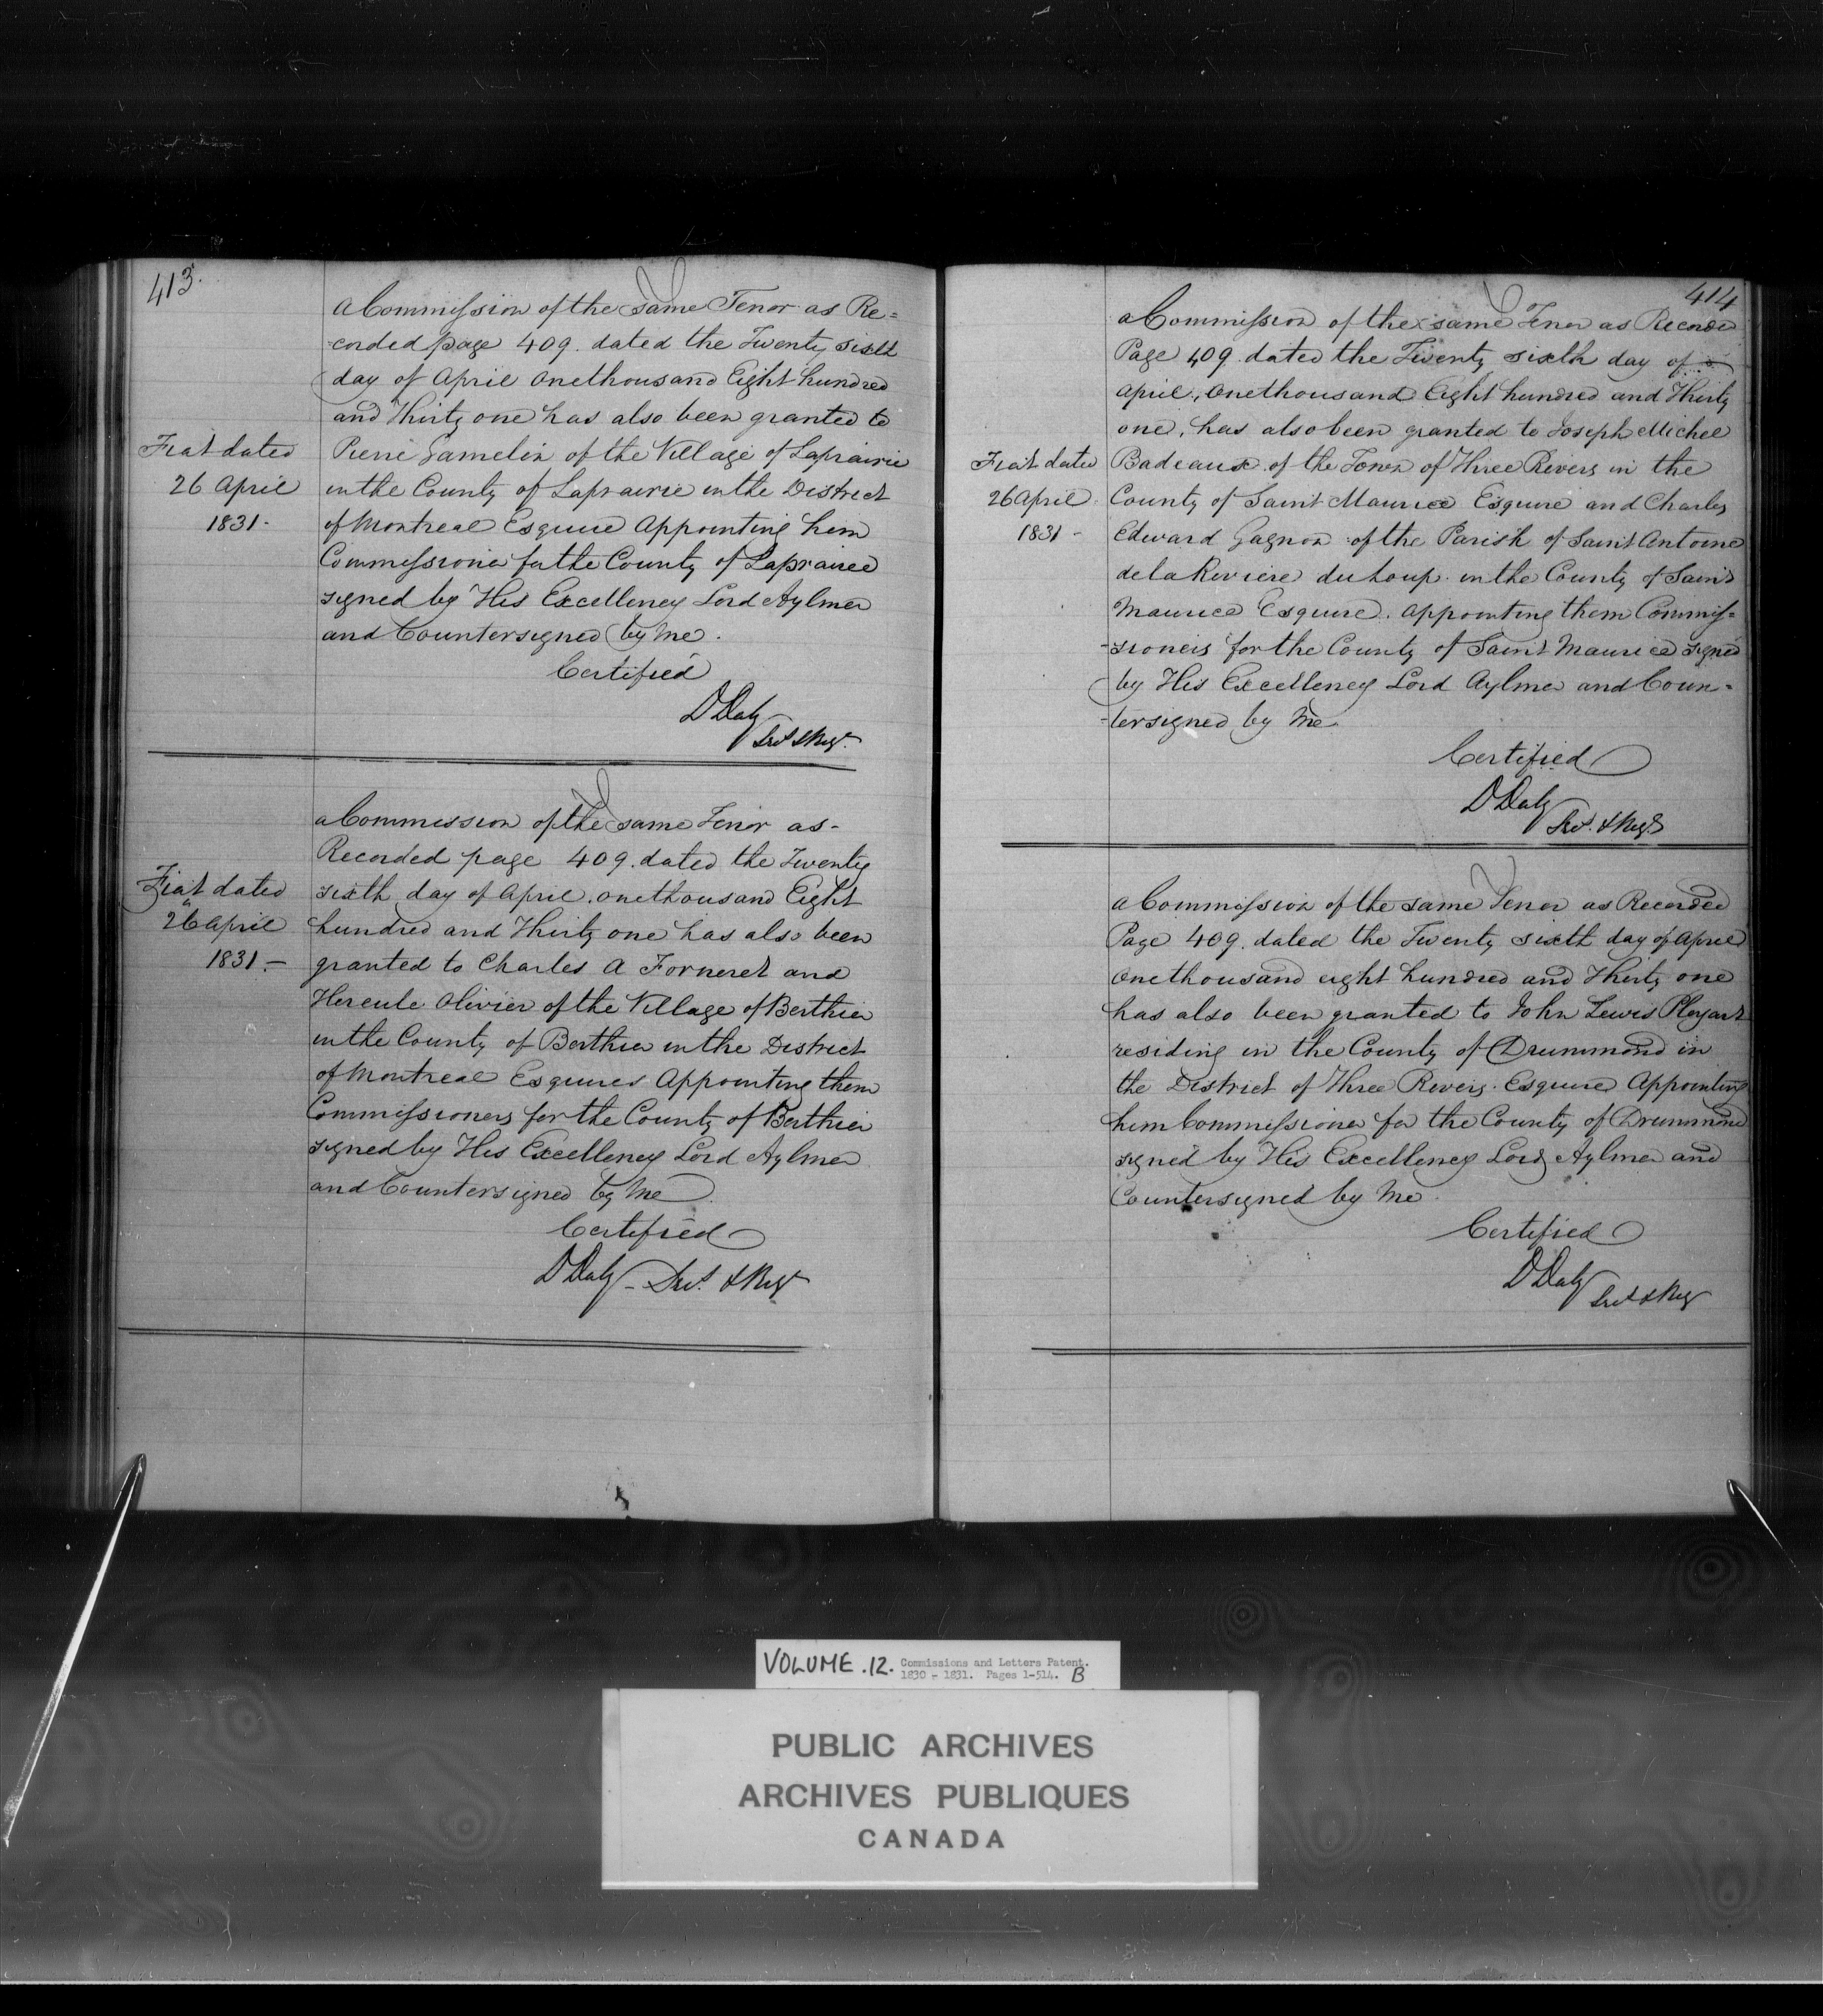 413.
A Commission of the same Tenor as Re=
=corded page 409. dated the Twenty sixth
day of April One thousand Eight hundred
and Thirty one has also been granted to
Fiat dated
26 April
1831-
Pierre Gamelin of the Village of Laprairie
in the County of Laprairie in the District
of Montreal Esquire Appointing him
Commissioner for the County of Laprairie
signed by His Excellency Lord Aylmer
and Countersigned by Me.
Certified
D Daly
Secy & Regr.
A Commission of the same Tenor as-
Recorded page 409. dated the Twenty
Fiat dated
26 April
1831.-
sixth day of April. One thousand Eight
hundred and Thirty one has also been
granted to Charles A Forneret and
Hercule Olivier of the Village of Berthier
in the County of Berthier in the District
of Montreal Esquires Appointing them
Commissioners for the County of Berthier
signed by His Excellency Lord Aylmer
and Countersigned by Me.
Certified
D Daly - Secy. & Regr
414
A Commission of the same Tenor as Recorded
Page 409. dated the Twenty sixth day of
April, One thousand Eight hundred and Thirty
one, has also been granted to Joseph Michel
Fiat dated
26 April
1831-
Badeaux of the Town of Three Rivers in the
County of Saint Maurice Esquire and Charles
Edward Gagnon of the Parish of Saint Antoine
de la Riviere du Loup. in the County of Saint
Maurice Esquire. Appointing them Commis=
=sioners for the County of Saint Maurice signed
by His Excellency Lord Aylmer and Coun=
=tersigned by Me
Certified
D Daly
Secy. & Regr
A Commission of the same Tenor as Recorded
Page 409. dated the Twenty sixth day of April
One thousand eight hundred and Thirty one
has also been granted to John Lewis
residing in the County of Drummond in
the District of Three Rivers. Esquire Appointing
him Commissioner for the County of Drummond
signed by His Excellency Lord Aylmer and
Countersigned by Me.
Certified
D Daly
Secy & Regr
VOLUME .12. Commissions and Letters Patent.
1830 - 1831. Pages 1-514. B
PUBLIC ARCHIVES
ARCHIVES PUBLIQUES
CANADA